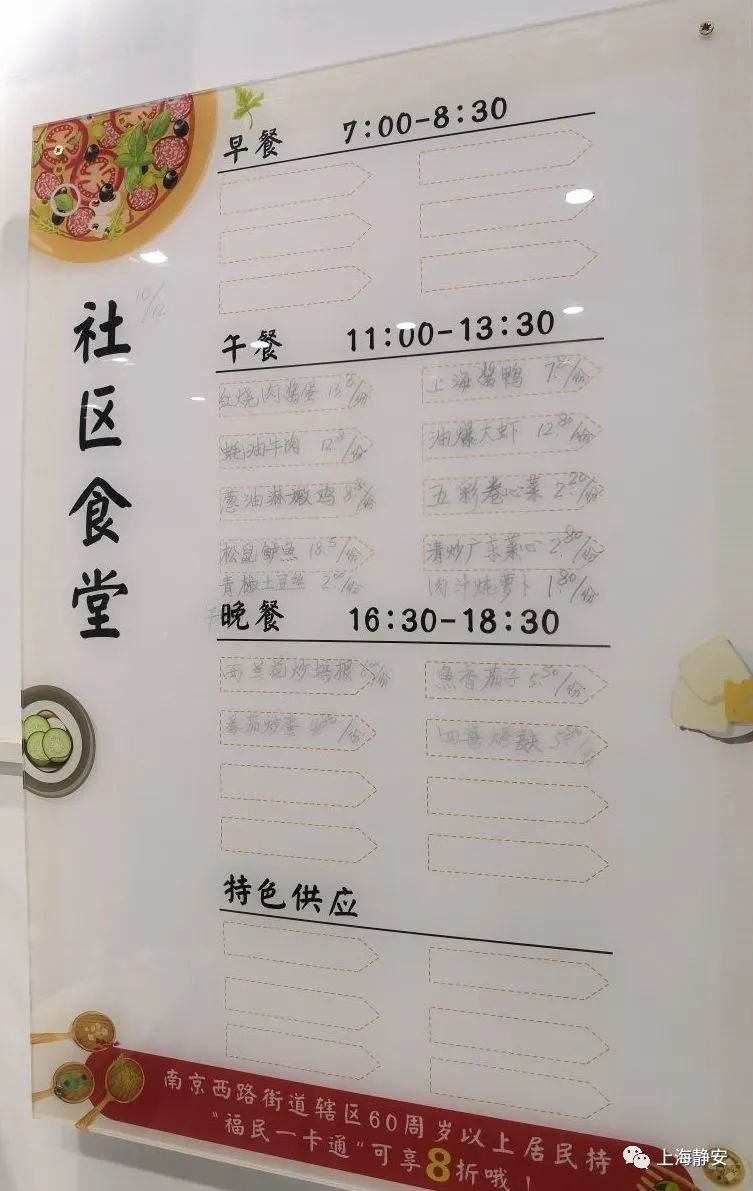 早餐 7:00-8:30
社区食堂
10/12
午餐 11:00-13:30
红烧肉酱蛋 13.8/份
上海酱鸭 7.8/份
蚝油牛肉 12.8/份
油爆大虾 12.80/份
葱油淋嫩鸡 8.8/份
五彩卷心菜 2.20/份
松鼠鲈鱼 18.5/份
清炒广东菜心 2.80/份
青椒土豆丝 2.00/份
肉汁炖萝卜 1.80/份
晚餐 16:30-18:30
西兰花炒
鱼香茄子 5.50/份
番茄炒蛋 4.80/份
四喜烤麸 5.80/份
特色供应
南京西路街道辖区60周岁以上居民持
“福民一卡通”可享8折哦！
上海静安